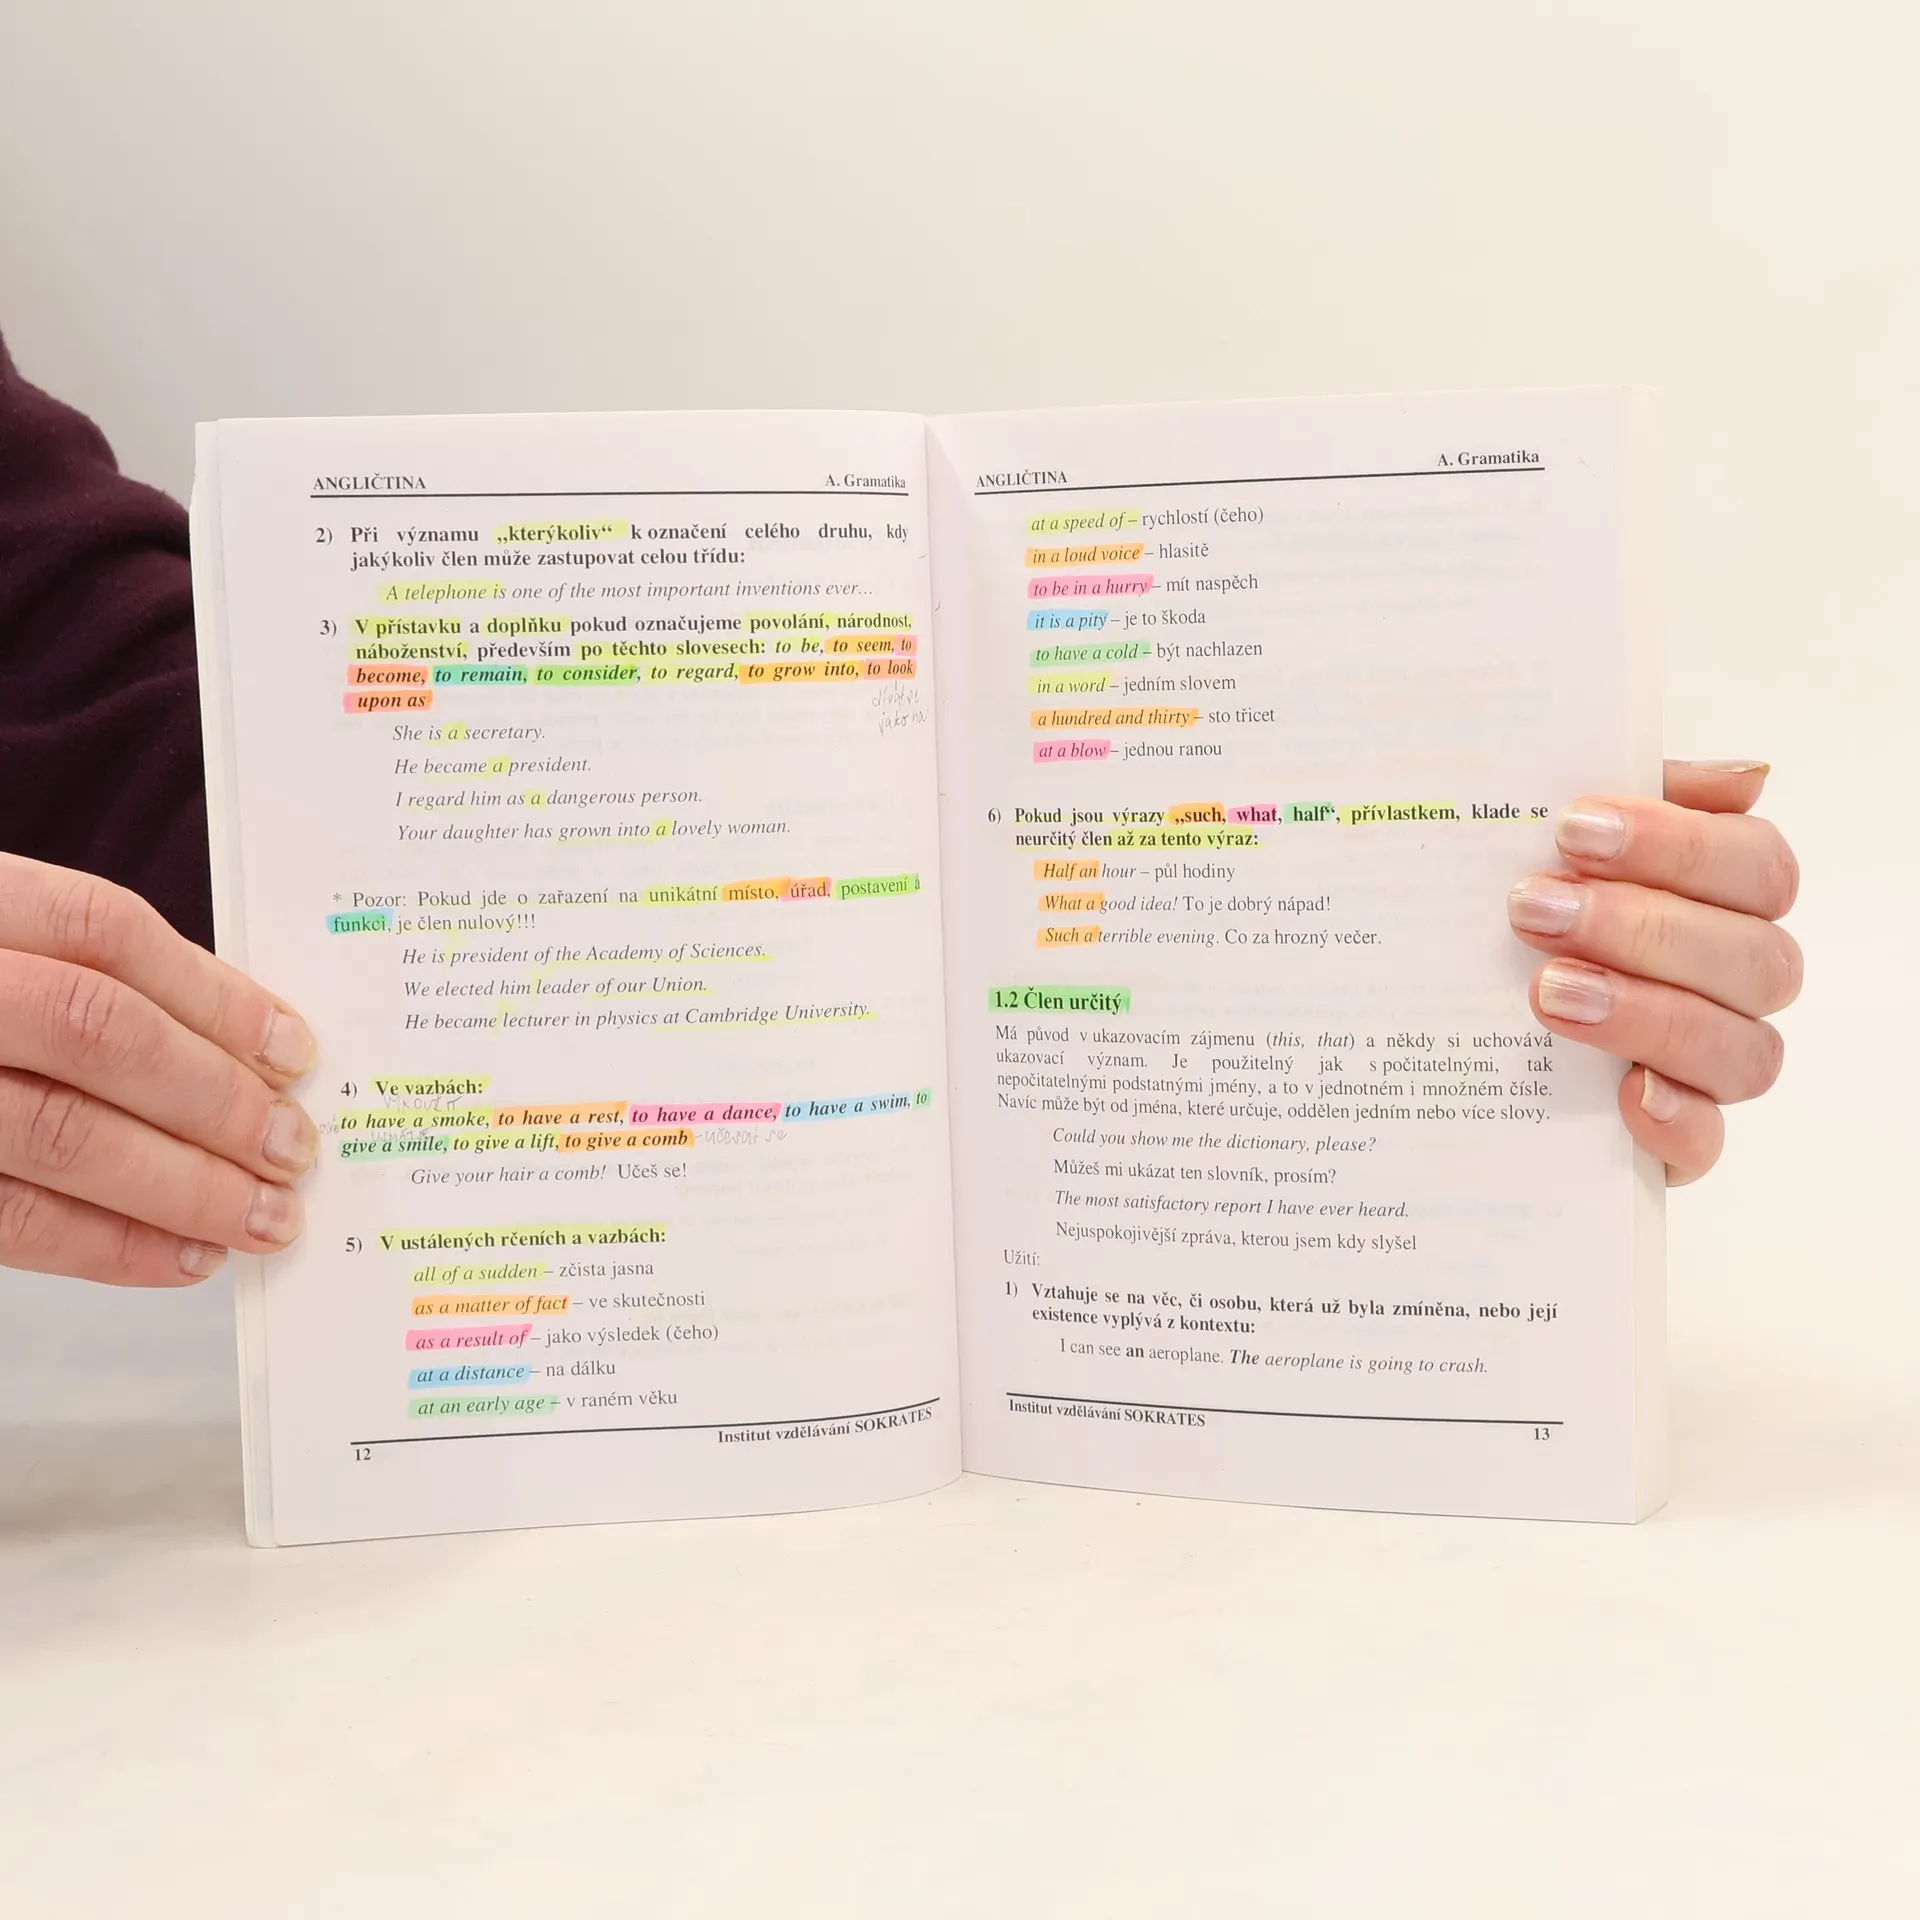 ANGLIČTINA A. Gramatika
2) Při významu „kterýkoliv“ k označení celého druhu, kdy
jakýkoliv člen může zastupovat celou třídu:
A telephone is one of the most important inventions ever...
3) V přístavku a doplňku pokud označujeme povolání, národnost,
náboženství, především po těchto slovesech: to be, to seem, to
become, to remain, to consider, to regard, to grow into, to look
upon as
dívat se
jako na
She is a secretary.
He became a president.
I regard him as a dangerous person.
Your daughter has grown into a lovely woman.
* Pozor: Pokud jde o zařazení na unikátní místo, úřad, postavení a
funkci, je člen nulový!!!
He is president of the Academy of Sciences.
We elected him leader of our Union.
He became lecturer in physics at Cambridge University.
4) Ve vazbách:
to have a smoke, to have a rest, to have a dance, to have a swim, to
give a smile, to give a lift, to give a comb - učesat se
Give your hair a comb! Učeš se!
5) V ustálených rčeních a vazbách:
all of a sudden – zčista jasna
as a matter of fact – ve skutečnosti
as a result of – jako výsledek (čeho)
at a distance – na dálku
at an early age – v raném věku
Institut vzdělávání SOKRATES
12
ANGLIČTINA A. Gramatika
at a speed of – rychlostí (čeho)
in a loud voice – hlasitě
to be in a hurry – mít naspěch
it is a pity – je to škoda
to have a cold – být nachlazen
in a word – jedním slovem
a hundred and thirty – sto třicet
at a blow – jednou ranou
6) Pokud jsou výrazy „such, what, half“, přívlastkem, klade se
neurčitý člen až za tento výraz:
Half an hour – půl hodiny
What a good idea! To je dobrý nápad!
Such a terrible evening. Co za hrozný večer.
1.2 Člen určitý
Má původ v ukazovacím zájmenu (this, that) a někdy si uchovává
ukazovací význam. Je použitelný jak s počitatelnými, tak
nepočitatelnými podstatnými jmény, a to v jednotném i množném čísle.
Navíc může být od jména, které určuje, oddělen jedním nebo více slovy.
Could you show me the dictionary, please?
Můžeš mi ukázat ten slovník, prosím?
The most satisfactory report I have ever heard.
Nejuspokojivější zpráva, kterou jsem kdy slyšel
Užití:
1) Vztahuje se na věc, či osobu, která už byla zmíněna, nebo její
existence vyplývá z kontextu:
I can see an aeroplane. The aeroplane is going to crash.
Institut vzdělávání SOKRATES
13